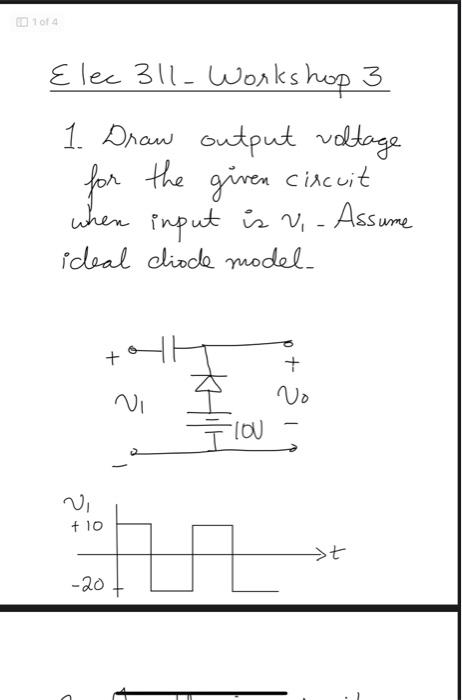 1 of 4
Elec 311 - Workshop 3
1. Draw output voltage
for the given circuit
when input is v₁ - Assume
ideal diode model -
+
+
v₁
v₀
10V
-
-
v₁
+10
t
-20